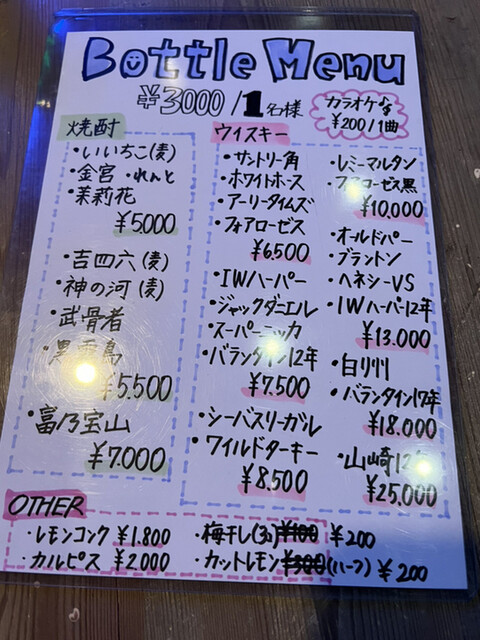 Bottle Menu
¥3000/1名様
カラオケ♪
¥200/1曲
焼酎
・いいちこ(麦)
・金宮 ・れんと
・茉莉花
¥5,000
・吉四六(麦)
・神の河(麦)
・武骨者
・黒霧島
¥5,500
・富乃宝山
¥7,000
ウイスキー
・サントリー角
・ホワイトホース
・アーリータイムズ
・フォアローゼス
¥6,500
・IWハーパー
・ジャックダニエル
・スーパーニッカ
・バランタイン12年
¥7,500
・シーバスリーガル
・ワイルドターキー
¥8,500
・レミーマルタン
・フォアローゼス黒
¥10,000
・オールドパー
・ブラントン
・ヘネシーVS
・IWハーパー12年
¥13.000
・白州
・バランタイン17年
¥18.000
・山崎12年
¥25,000
OTHER
・レモンコンク ¥1.800
・カルピス ¥2.000
・梅干し(3コ) ¥100 ¥200
・カットレモン ¥300 (ハーフ) ¥200